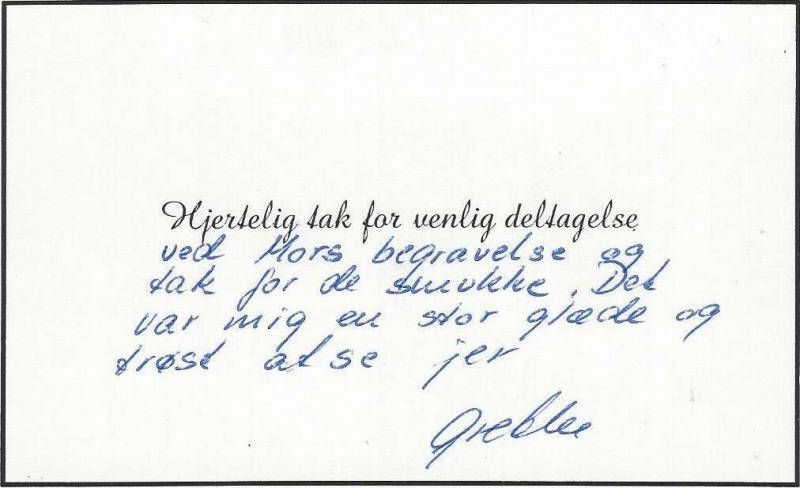 Hjertelig tak for venlig deltagelse
ved Mors begravelse og
tak for de smukke. Det
var mig en stor glæde og
trøst at se jer
Grethe